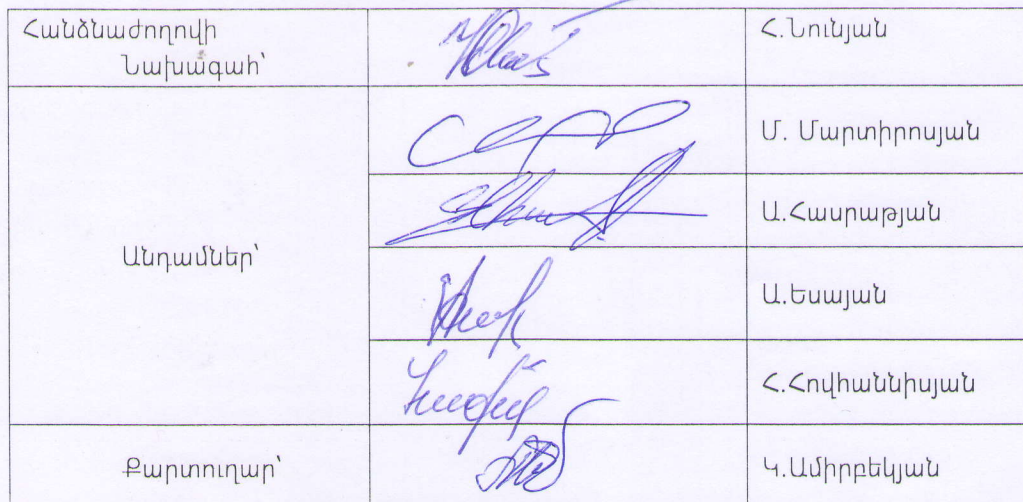 Հանձնաժողովի
Նախագահ՝
Հ.Նունյան
Մ. Մարտիրոսյան
Ա.Հասրաթյան
Անդամներ՝
Ա.Եսայան
Հ.Հովհաննիսյան
Քարտուղար՝
Կ.Ամիրբեկյան